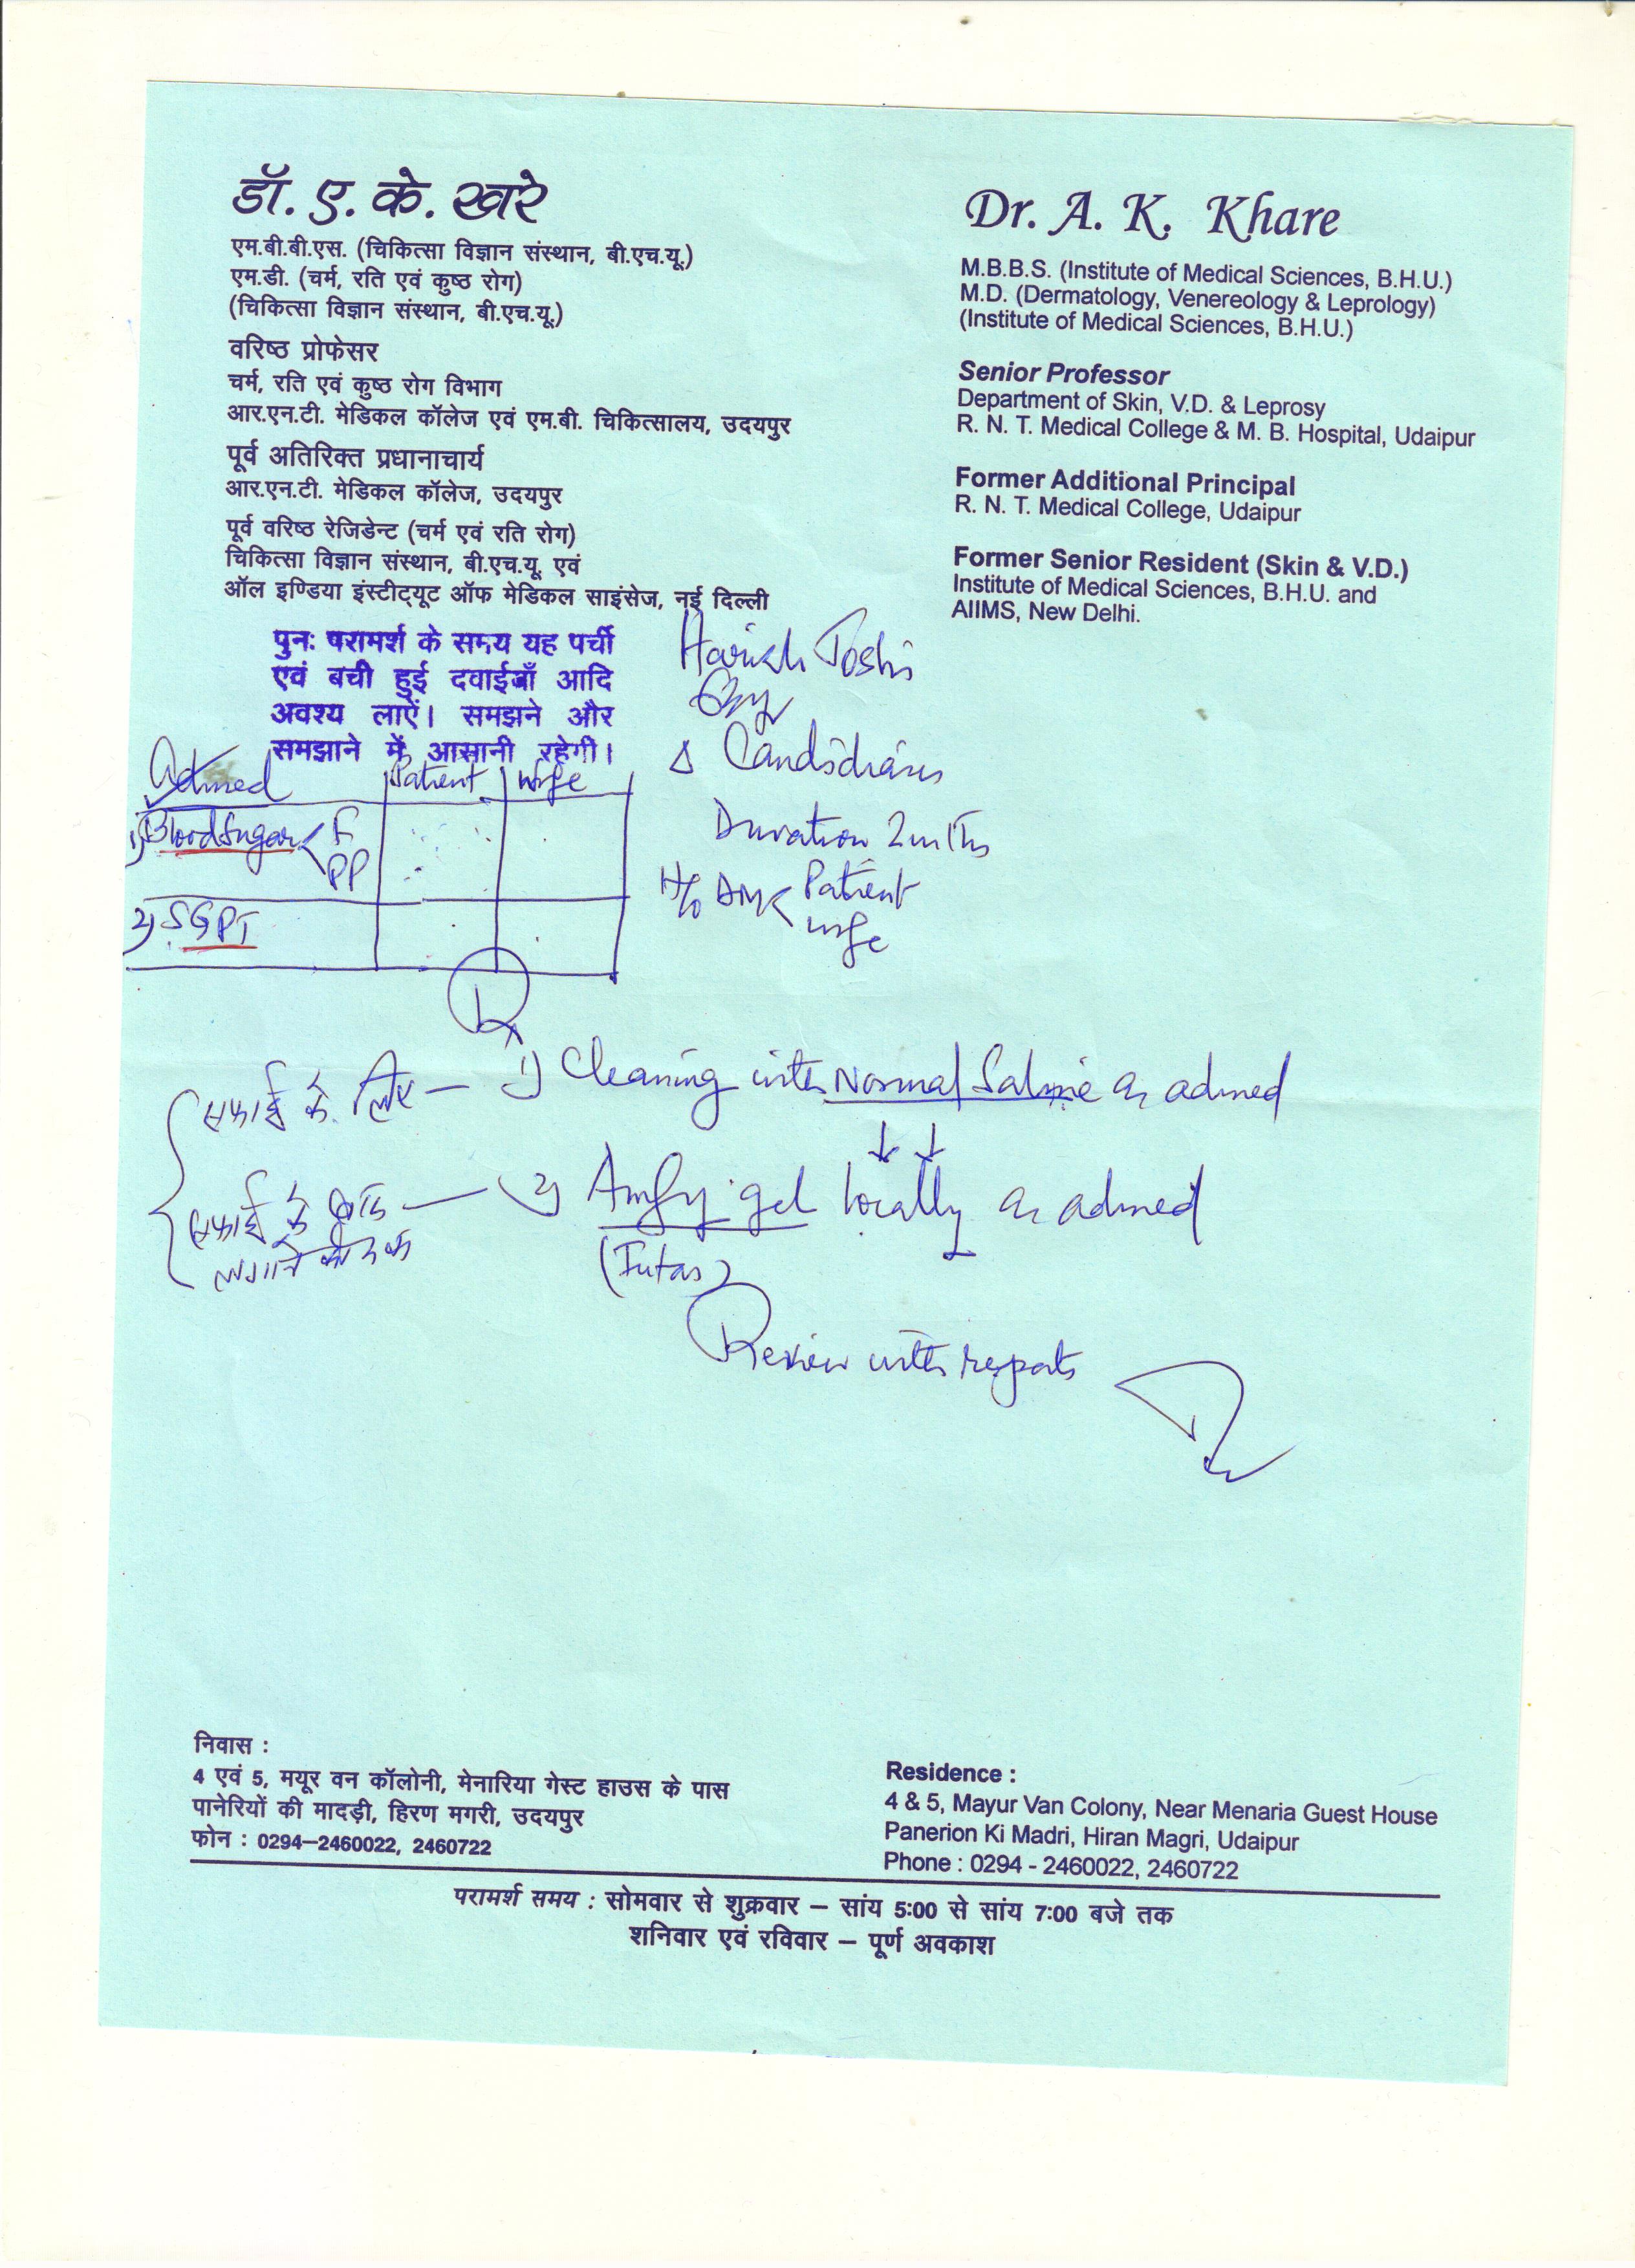 डॉ. ए. के. खरे
एम.बी.बी.एस. (चिकित्सा विज्ञान संस्थान, बी.एच.यू.)
एम.डी. (चर्म, रति एवं कुष्ठ रोग)
(चिकित्सा विज्ञान संस्थान, बी.एच.यू.)
वरिष्ठ प्रोफेसर
चर्म, रति एवं कुष्ठ रोग विभाग
आर.एन.टी. मेडिकल कॉलेज एवं एम.बी. चिकित्सालय, उदयपुर
पूर्व अतिरिक्त प्रधानाचार्य
आर.एन.टी. मेडिकल कॉलेज, उदयपुर
पूर्व वरिष्ठ रेजिडेन्ट (चर्म एवं रति रोग)
चिकित्सा विज्ञान संस्थान, बी.एच.यू. एवं
ऑल इण्डिया इंस्टीट्यूट ऑफ मेडिकल साइंसेज, नई दिल्ली
Dr. A. K. Khare
M.B.B.S. (Institute of Medical Sciences, B.H.U.)
M.D. (Dermatology, Venereology & Leprology)
(Institute of Medical Sciences, B.H.U.)
Senior Professor
Department of Skin, V.D. & Leprosy
R. N. T. Medical College & M. B. Hospital, Udaipur
Former Additional Principal
R. N. T. Medical College, Udaipur
Former Senior Resident (Skin & V.D.)
Institute of Medical Sciences, B.H.U. and
AIIMS, New Delhi.
पुनः परामर्श के समय यह पर्ची
एवं बची हुई दवाईयाँ आदि
अवश्य लाऐं। समझने और
समझाने में आसानी रहेगी।
Harish Joshi
Δ Candidiasis
Duration 2 mths
H/o DM < Patient
wife
Advised Patient Wife
1) Blood Sugar < F
PP
2) SGPT
Rx
सफाई के लिए — 1) Cleaning with Normal Saline as advised
↓ ↓
सफाई के बाद — 2) gel locally as advised
लगाने की दवा
Review with reports
निवास :
4 एवं 5, मयूर वन कॉलोनी, मेनारिया गेस्ट हाउस के पास
पानेरियों की मादड़ी, हिरण मगरी, उदयपुर
फोन : 0294–2460022, 2460722
Residence :
4 & 5, Mayur Van Colony, Near Menaria Guest House
Panerion Ki Madri, Hiran Magri, Udaipur
Phone : 0294 - 2460022, 2460722
परामर्श समय : सोमवार से शुक्रवार – सांय 5:00 से सांय 7:00 बजे तक
शनिवार एवं रविवार – पूर्ण अवकाश